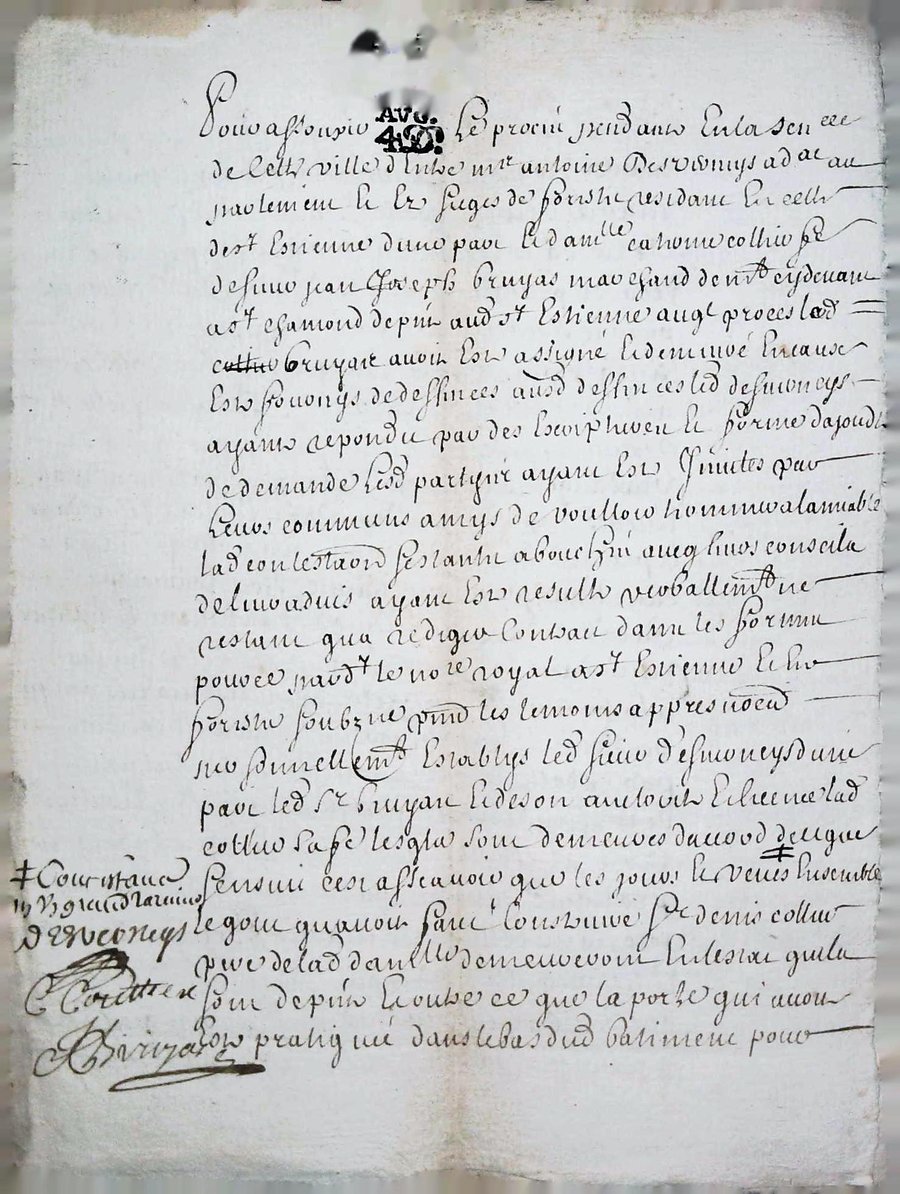 Pour assoupir AVG. 4.D. Le procès pendant En la Sen.cee
de cette ville Entre mre antoine Desverneys ad.at au
parlement Et Ez sieges de forestz residant En celle
de st Estienne d'une part Et dam.lle catherine collier fe
de sieur jean Joseph bruyas marchand de cydevant
a st chamond depuis aud st Estienne auql proces lad
bruyas avoit Esté assigné Et demeuré En cause
Este fournys de deffences ausd deffences led desverneys
ayant repondu par des Escriptures En forme d'ajoudt
de demande Lesd partyes ayant Esté Invites par
Leurs communs amys de vouloir terminer a lamiable
lad contestaon sestants abouchés avec leurs conseils
de leur advis ayant Esté resulté verballemt ne
restant qua rediger Contract dans les formes
pource pardt le nore royal a st Estienne En
forestz soubzne pnts les temoins appres només
personnellemt Establys led sieur desverneys d'une
part led sr bruyas Et de son authorité Et licence lad
collier sa fe lesqls sont demeurés d'accord de ce que
sensuit cest assavoir que les jours Et veues Ensemble
le gout quavoit faict Construire sr denis collier
pere de lad dam.lle demeureront En lestat quils
sont depuis Et outre ce que la porte qui avoit
Esté pratiquée dans le bas dud batiment pour
‡ Constance
DESVERNEYS
C Collier
Bruyas